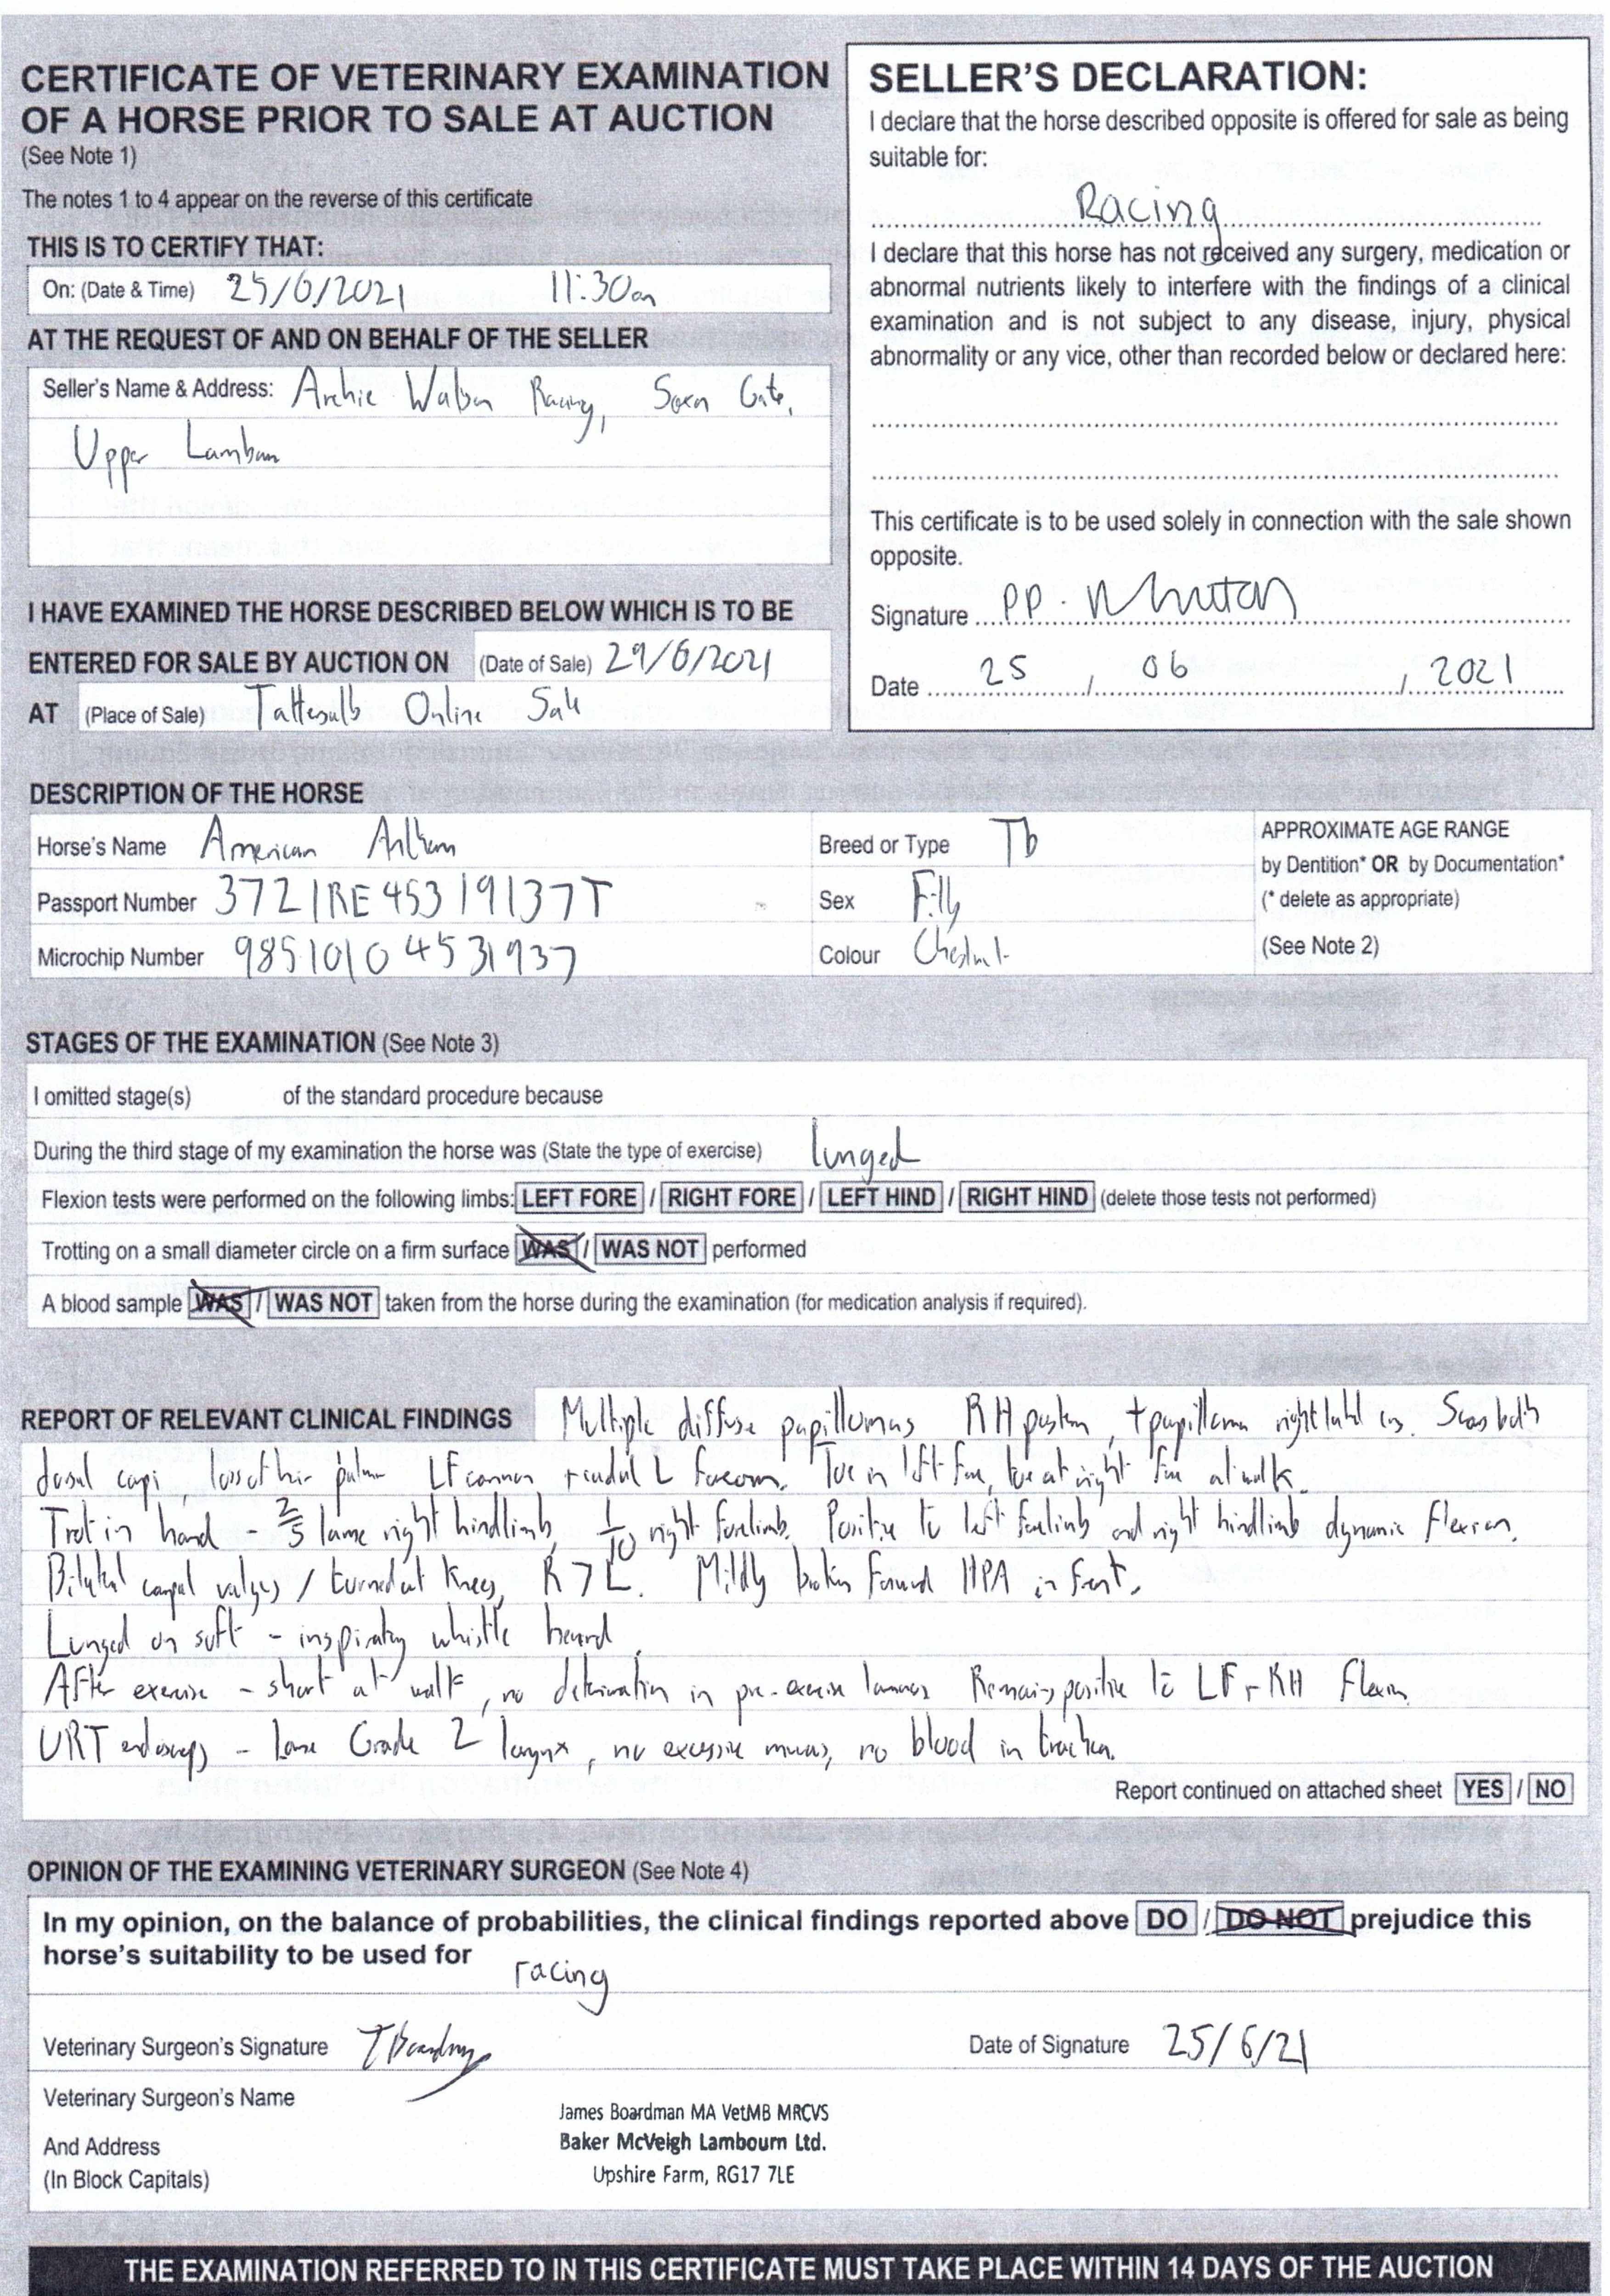 CERTIFICATE OF VETERINARY EXAMINATION
OF A HORSE PRIOR TO SALE AT AUCTION
(See Note 1)
The notes 1 to 4 appear on the reverse of this certificate
THIS IS TO CERTIFY THAT:
On: (Date & Time) 25/6/2021 11:30am
AT THE REQUEST OF AND ON BEHALF OF THE SELLER
Seller's Name & Address: Archie Watson Racing, Saxon Gate,
Upper Lambourn
I HAVE EXAMINED THE HORSE DESCRIBED BELOW WHICH IS TO BE
ENTERED FOR SALE BY AUCTION ON (Date of Sale) 29/6/2021
AT (Place of Sale) Tattersalls Online Sale
SELLER'S DECLARATION:
I declare that the horse described opposite is offered for sale as being
suitable for:
Racing
I declare that this horse has not received any surgery, medication or
abnormal nutrients likely to interfere with the findings of a clinical
examination and is not subject to any disease, injury, physical
abnormality or any vice, other than recorded below or declared here:
This certificate is to be used solely in connection with the sale shown
opposite.
Signature pp.
Date 25 / 06 / 2021
DESCRIPTION OF THE HORSE
Horse's Name American Anthem
Passport Number 372IRE45319137T
Microchip Number 98510104531937
Breed or Type Tb
Sex Filly
Colour Chestnut
APPROXIMATE AGE RANGE
by Dentition* OR by Documentation*
(* delete as appropriate)
(See Note 2)
STAGES OF THE EXAMINATION (See Note 3)
I omitted stage(s) of the standard procedure because
During the third stage of my examination the horse was (State the type of exercise) lunged
Flexion tests were performed on the following limbs: LEFT FORE / RIGHT FORE / LEFT HIND / RIGHT HIND (delete those tests not performed)
Trotting on a small diameter circle on a firm surface WAS / WAS NOT performed
A blood sample WAS / WAS NOT taken from the horse during the examination (for medication analysis if required).
REPORT OF RELEVANT CLINICAL FINDINGS Multiple diffuse papillomas RH pastern, + papilloma right Scars both
dorsal carpi, loss of hair palmar LF cannon + caudal L forearm. Toe in left fore, toe out right fore at walk.
Trot in hand - 2/5 lame right hindlimb, 1/10 right forelimb. Positive to left forelimb and right hindlimb dynamic flexion.
Bilateral carpal valgus / turned out knees, R > L. Mildly broken forward HPA in front.
Lunged on soft - inspiratory whistle heard.
After exercise - short at walk, no deterioration in pre-exercise lameness Remains positive to LF + RH flexion.
URT endoscopy - Lane Grade 2 larynx, no excessive mucus, no blood in trachea.
Report continued on attached sheet YES / NO
OPINION OF THE EXAMINING VETERINARY SURGEON (See Note 4)
In my opinion, on the balance of probabilities, the clinical findings reported above DO / DO NOT prejudice this
horse's suitability to be used for racing
Veterinary Surgeon's Signature JBoardman
Date of Signature 25/6/21
Veterinary Surgeon's Name
And Address
(In Block Capitals)
James Boardman MA VetMB MRCVS
Baker McVeigh Lambourn Ltd.
Upshire Farm, RG17 7LE
THE EXAMINATION REFERRED TO IN THIS CERTIFICATE MUST TAKE PLACE WITHIN 14 DAYS OF THE AUCTION